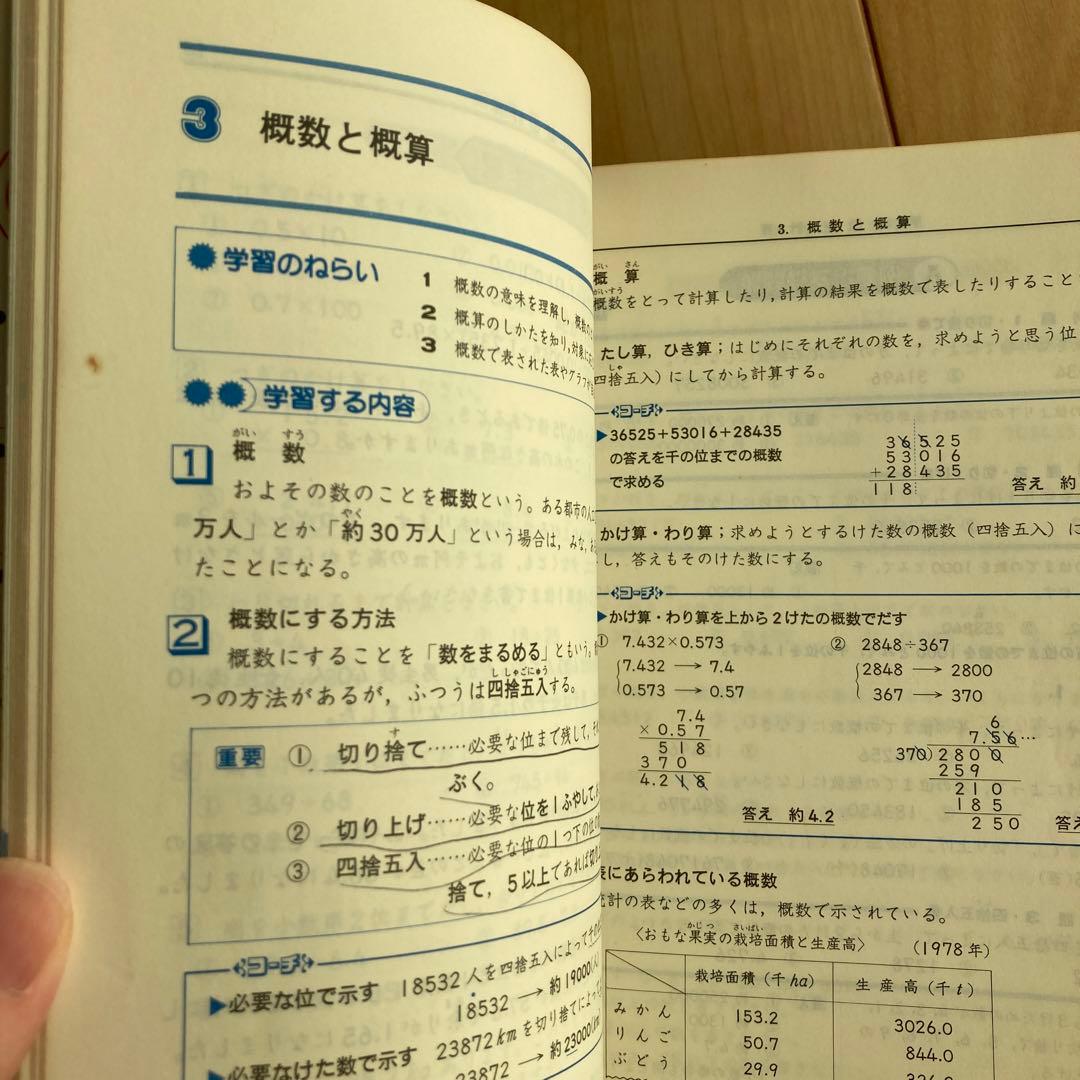 3 概数と概算
学習のねらい
1 概数の意味を理解し,概数の
2 概算のしかたを知り,対象に
3 概数で表された表やグラフ
学習する内容
がい すう
1 概数
およその数のことを概数という。ある都市の人
やく
万人」とか「約30万人」という場合は,みな,
たことになる。
2 概数にする方法
概数にすることを「数をまるめる」ともいう。
ししゃごにゅう
つの方法があるが,ふつうは四捨五入する。
す
重要 ① 切り捨て……必要な位まで残して,
ぶく。
② 切り上げ……必要な位を1ふやして,
③ 四捨五入……必要な位の1つ下の位
捨て,5以上であれば切り
コーチ
▶必要な位で示す 18532人を四捨五入によって千の
18532 → 約19000(人)
▶必要なけた数で示す 23872kmを切り捨てによって
23872 → 約23000(km)
3. 概数と概算
がい さん
概算
がいすう
概数をとって計算したり,計算の結果を概数で表したりすること
たし算,ひき算;はじめにそれぞれの数を,求めようと思う位
しゃ
四捨五入)にしてから計算する。
コーチ
▶36525+53016+28435
の答えを千の位までの概数
で求める
36525
53016
+28435
118
答え 約
かけ算・わり算;求めようとするけた数の概数(四捨五入)に
し,答えもそのけた数にする。
コーチ
▶かけ算・わり算を上から2けたの概数でだす
① 7.432×0.573
7.432 → 7.4
0.573 → 0.57
7.4
×0.57
518
370
4.218
答え 約4.2
② 2848÷367
2848 → 2800
367 → 370
6
7.56…
370)2800
259
210
185
250
答
表にあらわれている概数
統計の表などの多くは,概数で示されている。
かじつ さいばい
〈おもな果実の栽培面積と生産高〉 (1978年)
栽培面積(千ha) 生産高(千t)
みかん 153.2 3026.0
りんご 50.7 844.0
ぶどう 29.9